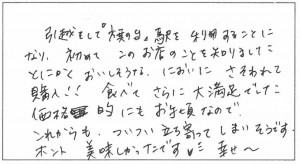 引越をして「旗の台」駅を利用することに
なり、初めて このお店のことを知りました
とにかく おいしそうな、においに さそわれて
購入!! 食べて さらに 大満足でした
価格 的にも お手頃なので
これからも、ついつい立ち寄って しまいそうです
ホント 美味しかったです♥ 幸せ〜